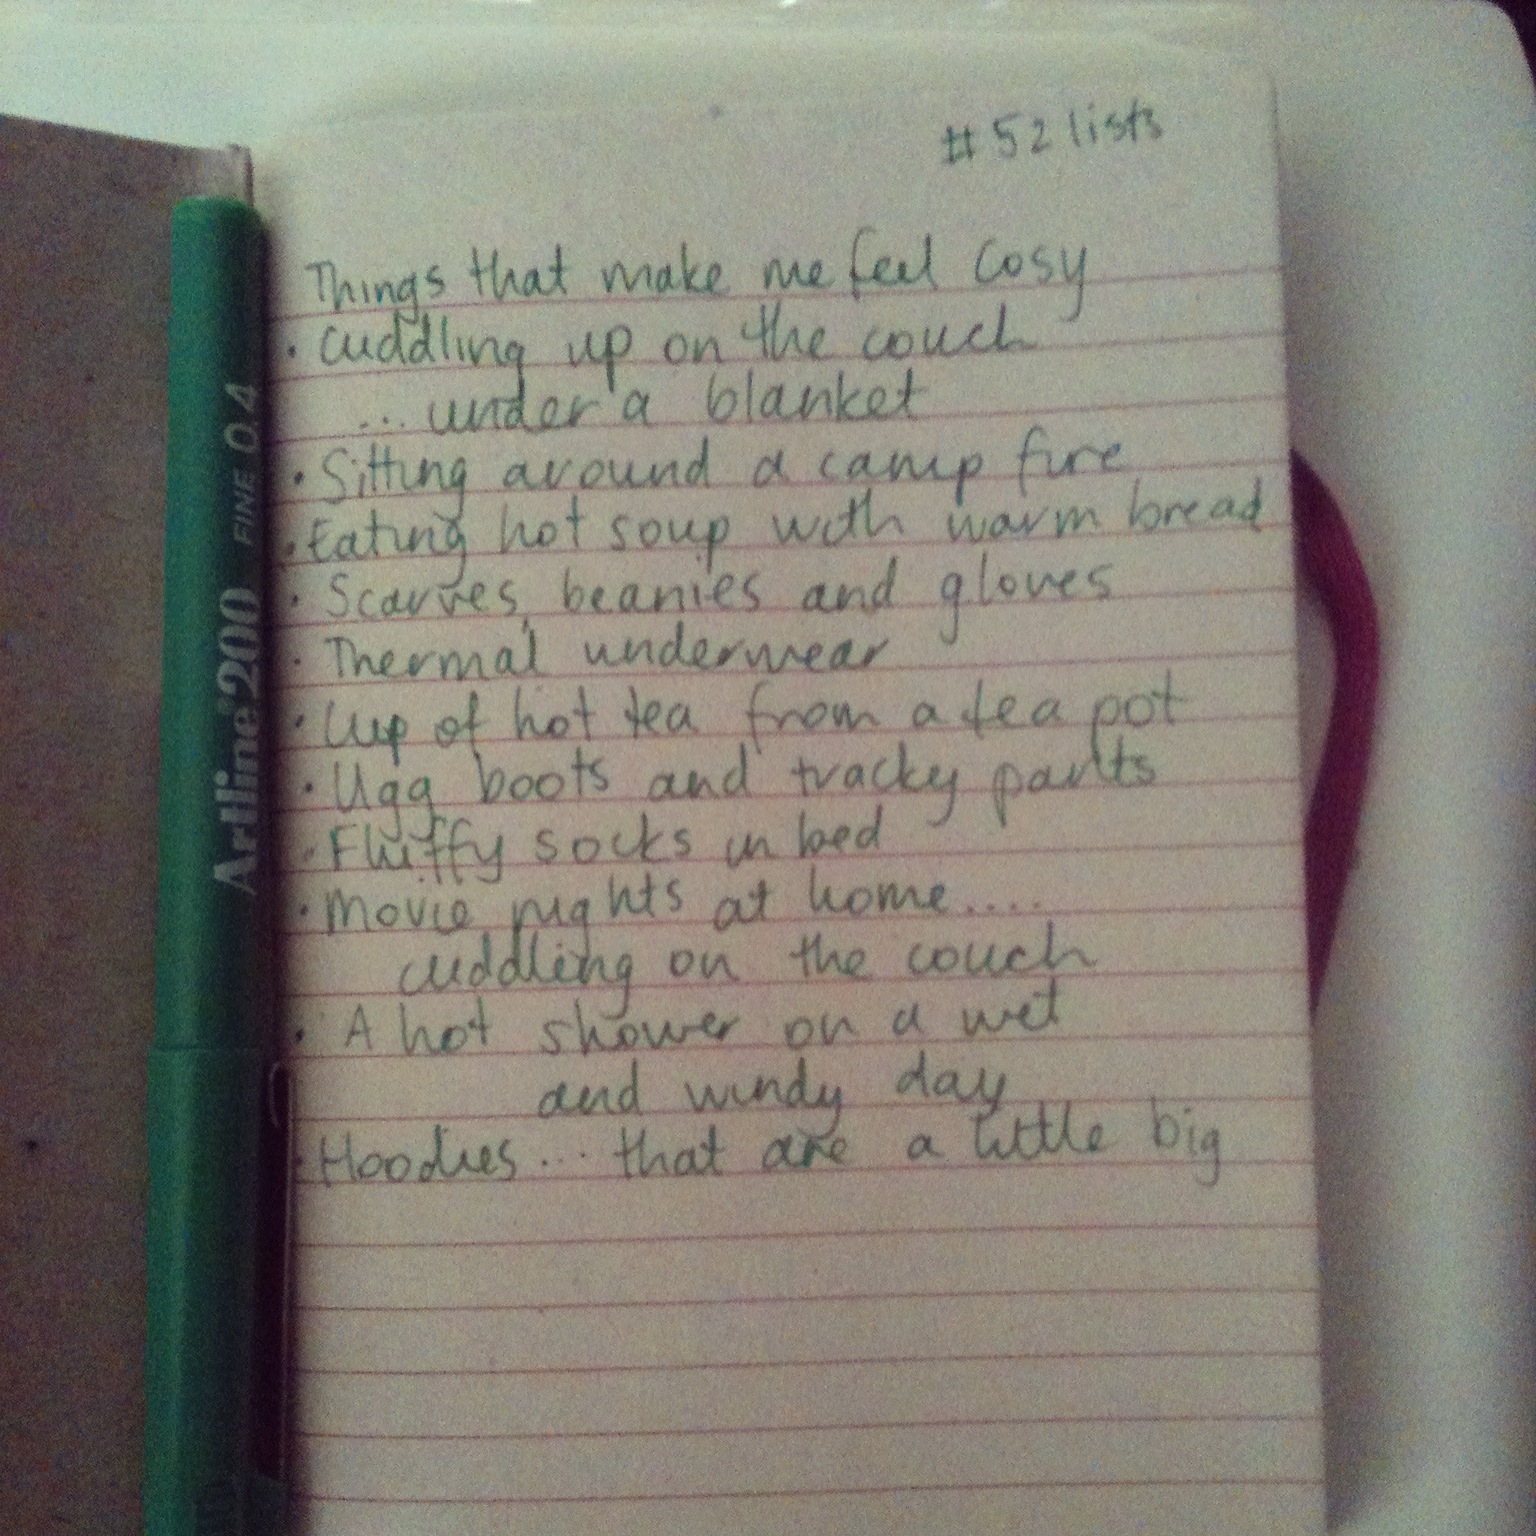 #52 lists
Things that make me feel Cosy
• Cuddling up on the couch
... under a blanket
• Sitting around a camp fire
• Eating hot soup with warm bread
• Scarves, beanies and gloves
• Thermal underwear
• Cup of hot tea from a tea pot
• Ugg boots and tracky pants
• Fluffy socks in bed
• Movie nights at home....
cuddling on the couch
• A hot shower on a wet
and windy day
• Hoodies... that are a little big
Artline 200 FINE 0.4